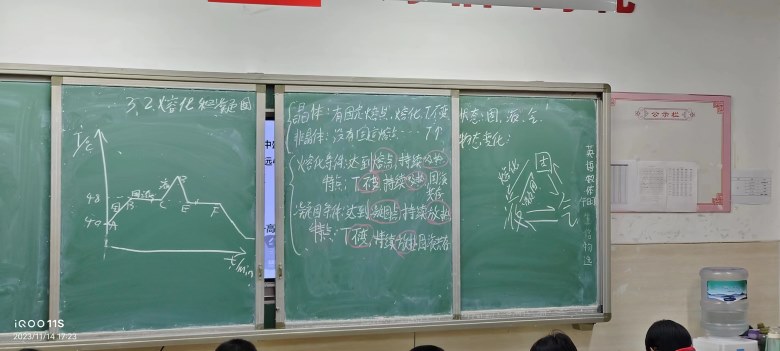 3.2 熔化和凝固
T/℃
48
40
A
B
固液
液
D
E
F
t/min
晶体:有固定熔点,熔化T不变
非晶体:没有固定熔点···T个
熔化条件:达到熔点,持续吸热
特点:T不变,持续吸热,固液共存
凝固条件:达到凝固点,持续放热
特点:T不变,持续放热,固液共存
状态:固,液,气
物态变化:
熔化
凝固
固
液
气
公示栏
iQOO 11S
2023/11/14 17:23